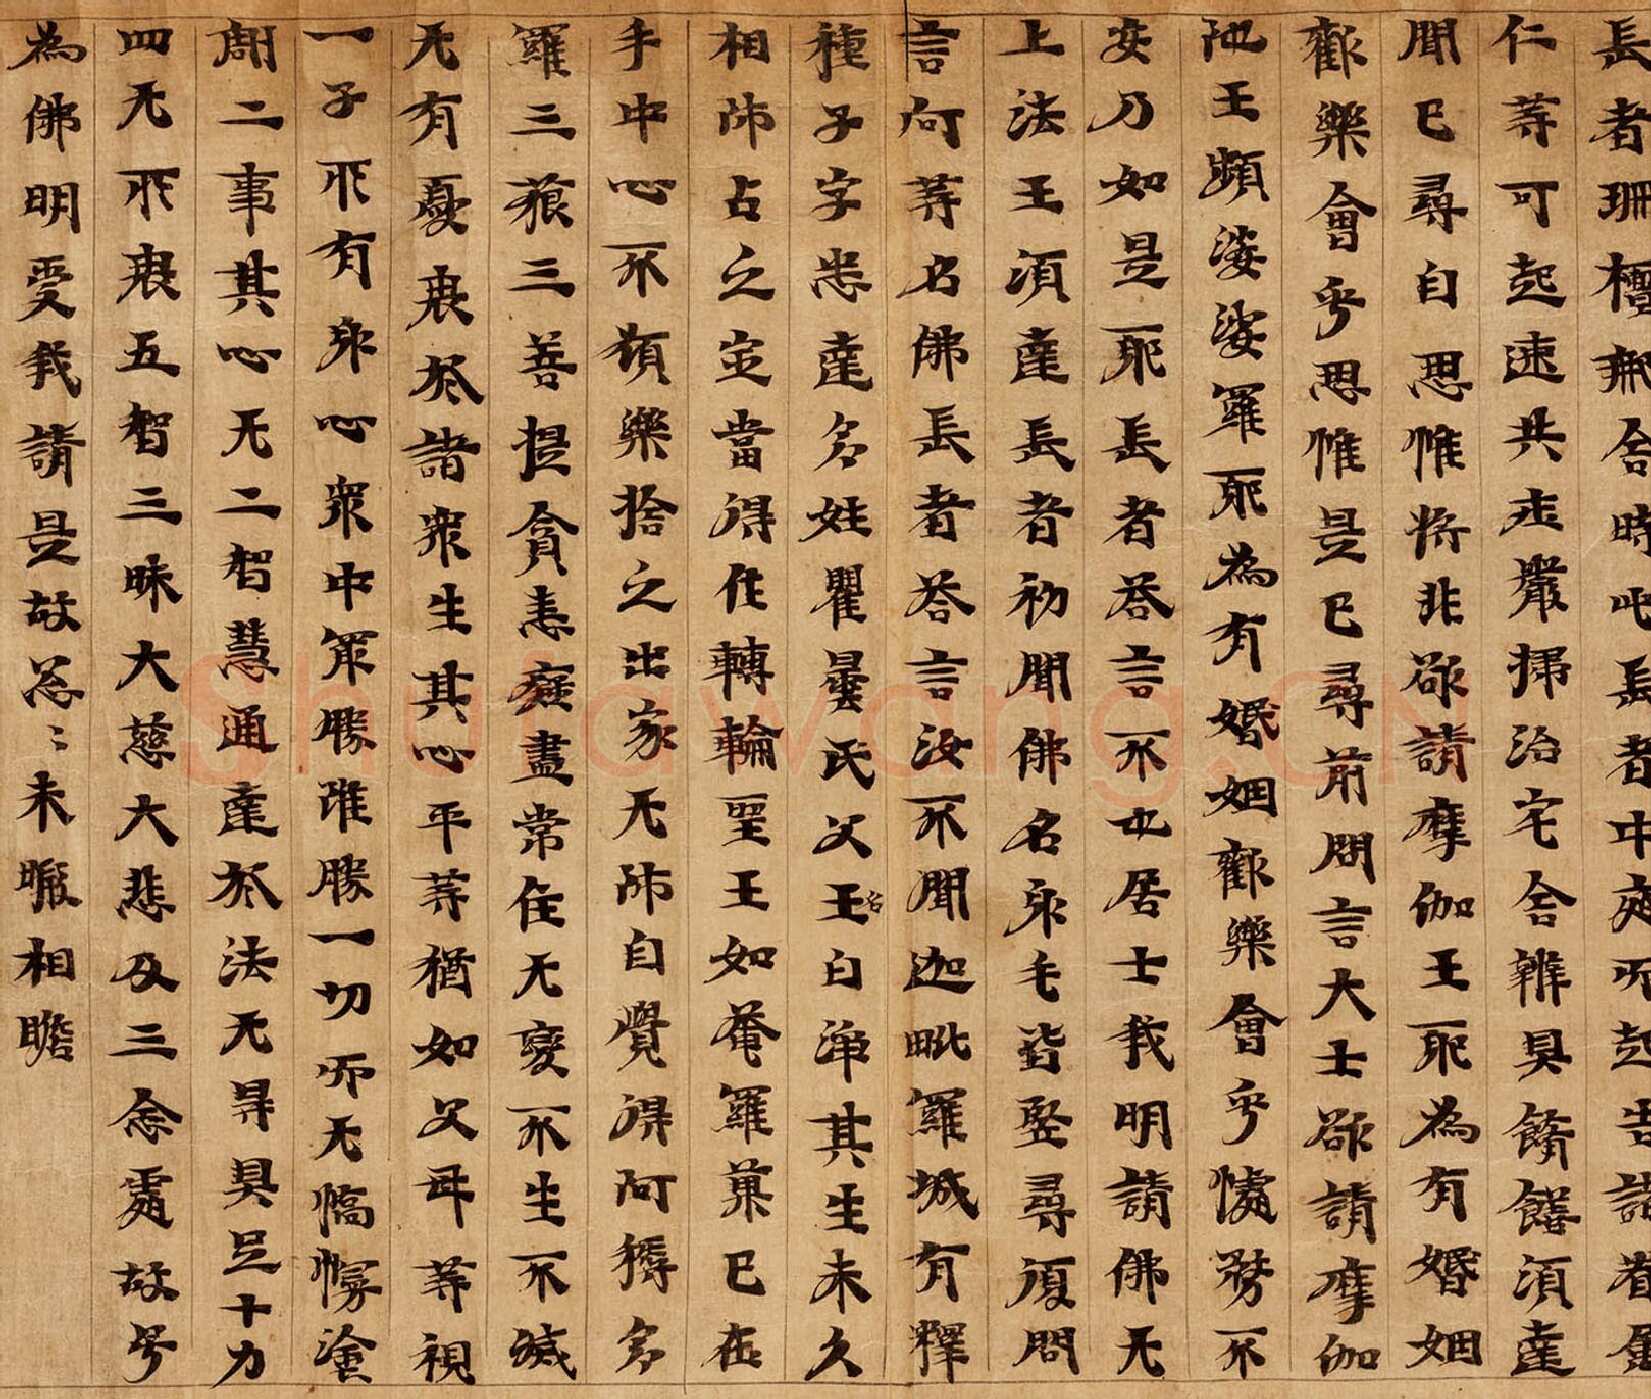 長者珊檀那舍時此長者中夜而起告諸眷屬
仁等可起速共庄嚴掃治宅舍辨具餚饍須達
聞已尋自思惟將非欲請摩伽王耶為有婚姻
歡樂會乎思惟是已尋前問言大士欲請摩伽
陁王頻婆娑羅耶為有婚姻歡樂會乎懅務不
安乃如是耶長者荅言不也居士我明請佛无
上法王須達長者初聞佛名身毛皆竪尋復問
言何等名佛長者荅言汝不聞迦毗羅城有釋
種子字悉達多姓瞿曇氏父王名白淨其生未久
相師占之定當得作轉輪聖王如菴羅菓已在
手中心不願樂捨之出家无師自覺得阿耨多
羅三藐三菩提貪恚癡盡常住无變不生不滅
无有憂畏於諸衆生其心平等猶如父母等視
一子所有身心衆中冣勝雖勝一切而无憍慢塗
割二事其心无二智慧通達於法无㝵具足十力
四无所畏五智三昧大慈大悲及三念處故号
為佛明受我請是故忩〻未暇相瞻
Shufawang.CN